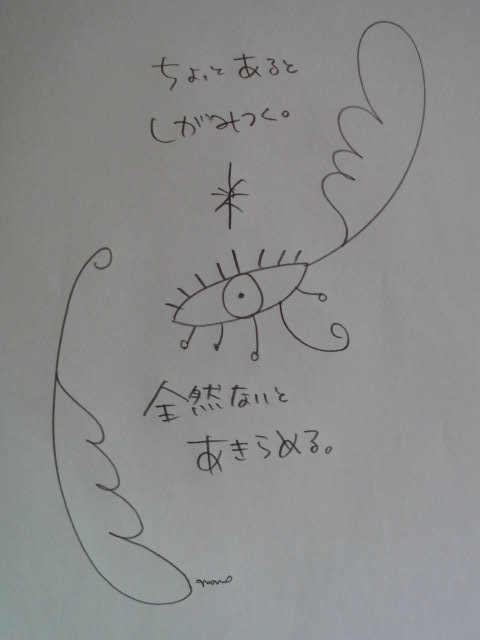 ちょっとあると
しがみつく。
全然ないと
あきらめる。